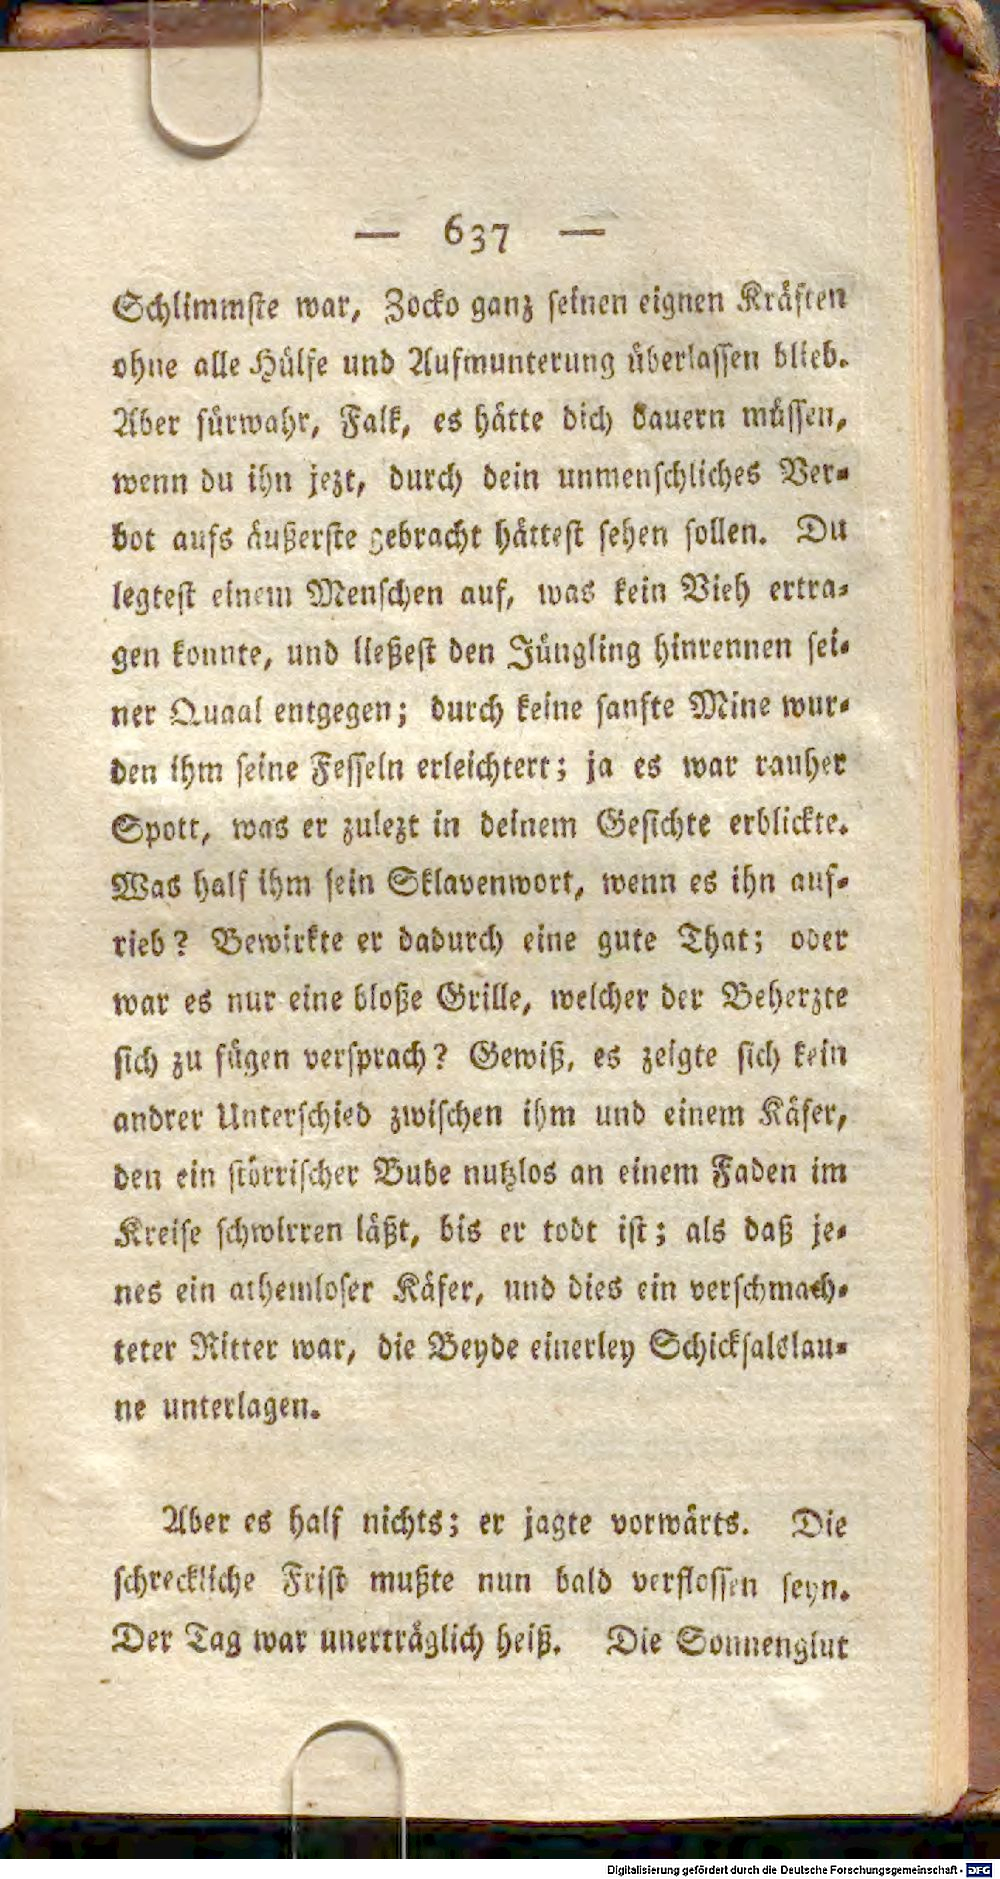 — 637 —
Schlimmste war, Zocko ganz seinen eignen Kräften
ohne alle Hülfe und Aufmunterung überlassen blieb.
Aber fürwahr, Falk, es hätte dich dauern müssen,
wenn du ihn jezt, durch dein unmenschliches Ver-
bot aufs äußerste gebracht hättest sehen sollen. Du
legtest einem Menschen auf, was kein Vieh ertra-
gen konnte, und ließest den Jüngling hinrennen sei-
ner Quaal entgegen; durch keine sanfte Mine wur-
den ihm seine Fesseln erleichtert; ja es war rauher
Spott, was er zulezt in deinem Gesichte erblickte.
Was half ihm sein Sklavenwort, wenn es ihn auf-
rieb? Bewirkte er dadurch eine gute That; oder
war es nur eine bloße Grille, welcher der Beherzte
sich zu fügen versprach? Gewiß, es zeigte sich kein
andrer Unterschied zwischen ihm und einem Käfer,
den ein störrischer Bube nutzlos an einem Faden im
Kreise schwirren läßt, bis er todt ist; als daß je-
nes ein athemloser Käfer, und dies ein verschmach-
teter Ritter war, die Beyde einerley Schicksalslau-
ne unterlagen.
Aber es half nichts; er jagte vorwärts. Die
schreckliche Frist mußte nun bald verflossen seyn.
Der Tag war unerträglich heiß. Die Sonnenglut
Digitalisierung gefördert durch die Deutsche Forschungsgemeinschaft - DFG